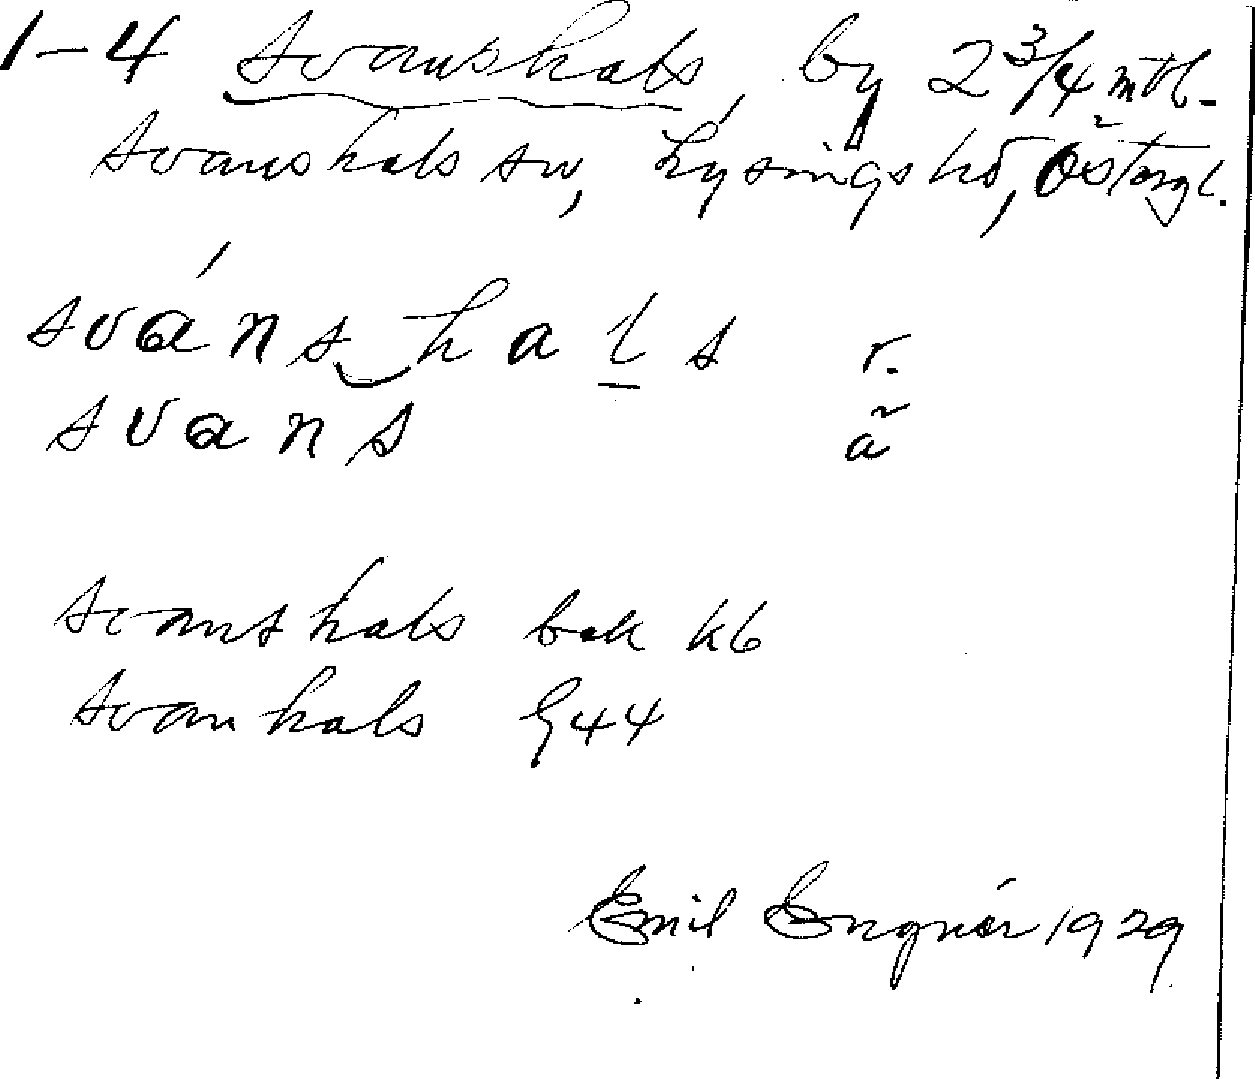 1-4 Svanshals, by 2 3/4 mtl.
Svanshals sn, Lysings hd, Östergl.
svánshals r.
svans ã
Svanshals bak kb
Svanhals G44
Emil Engnér 1929